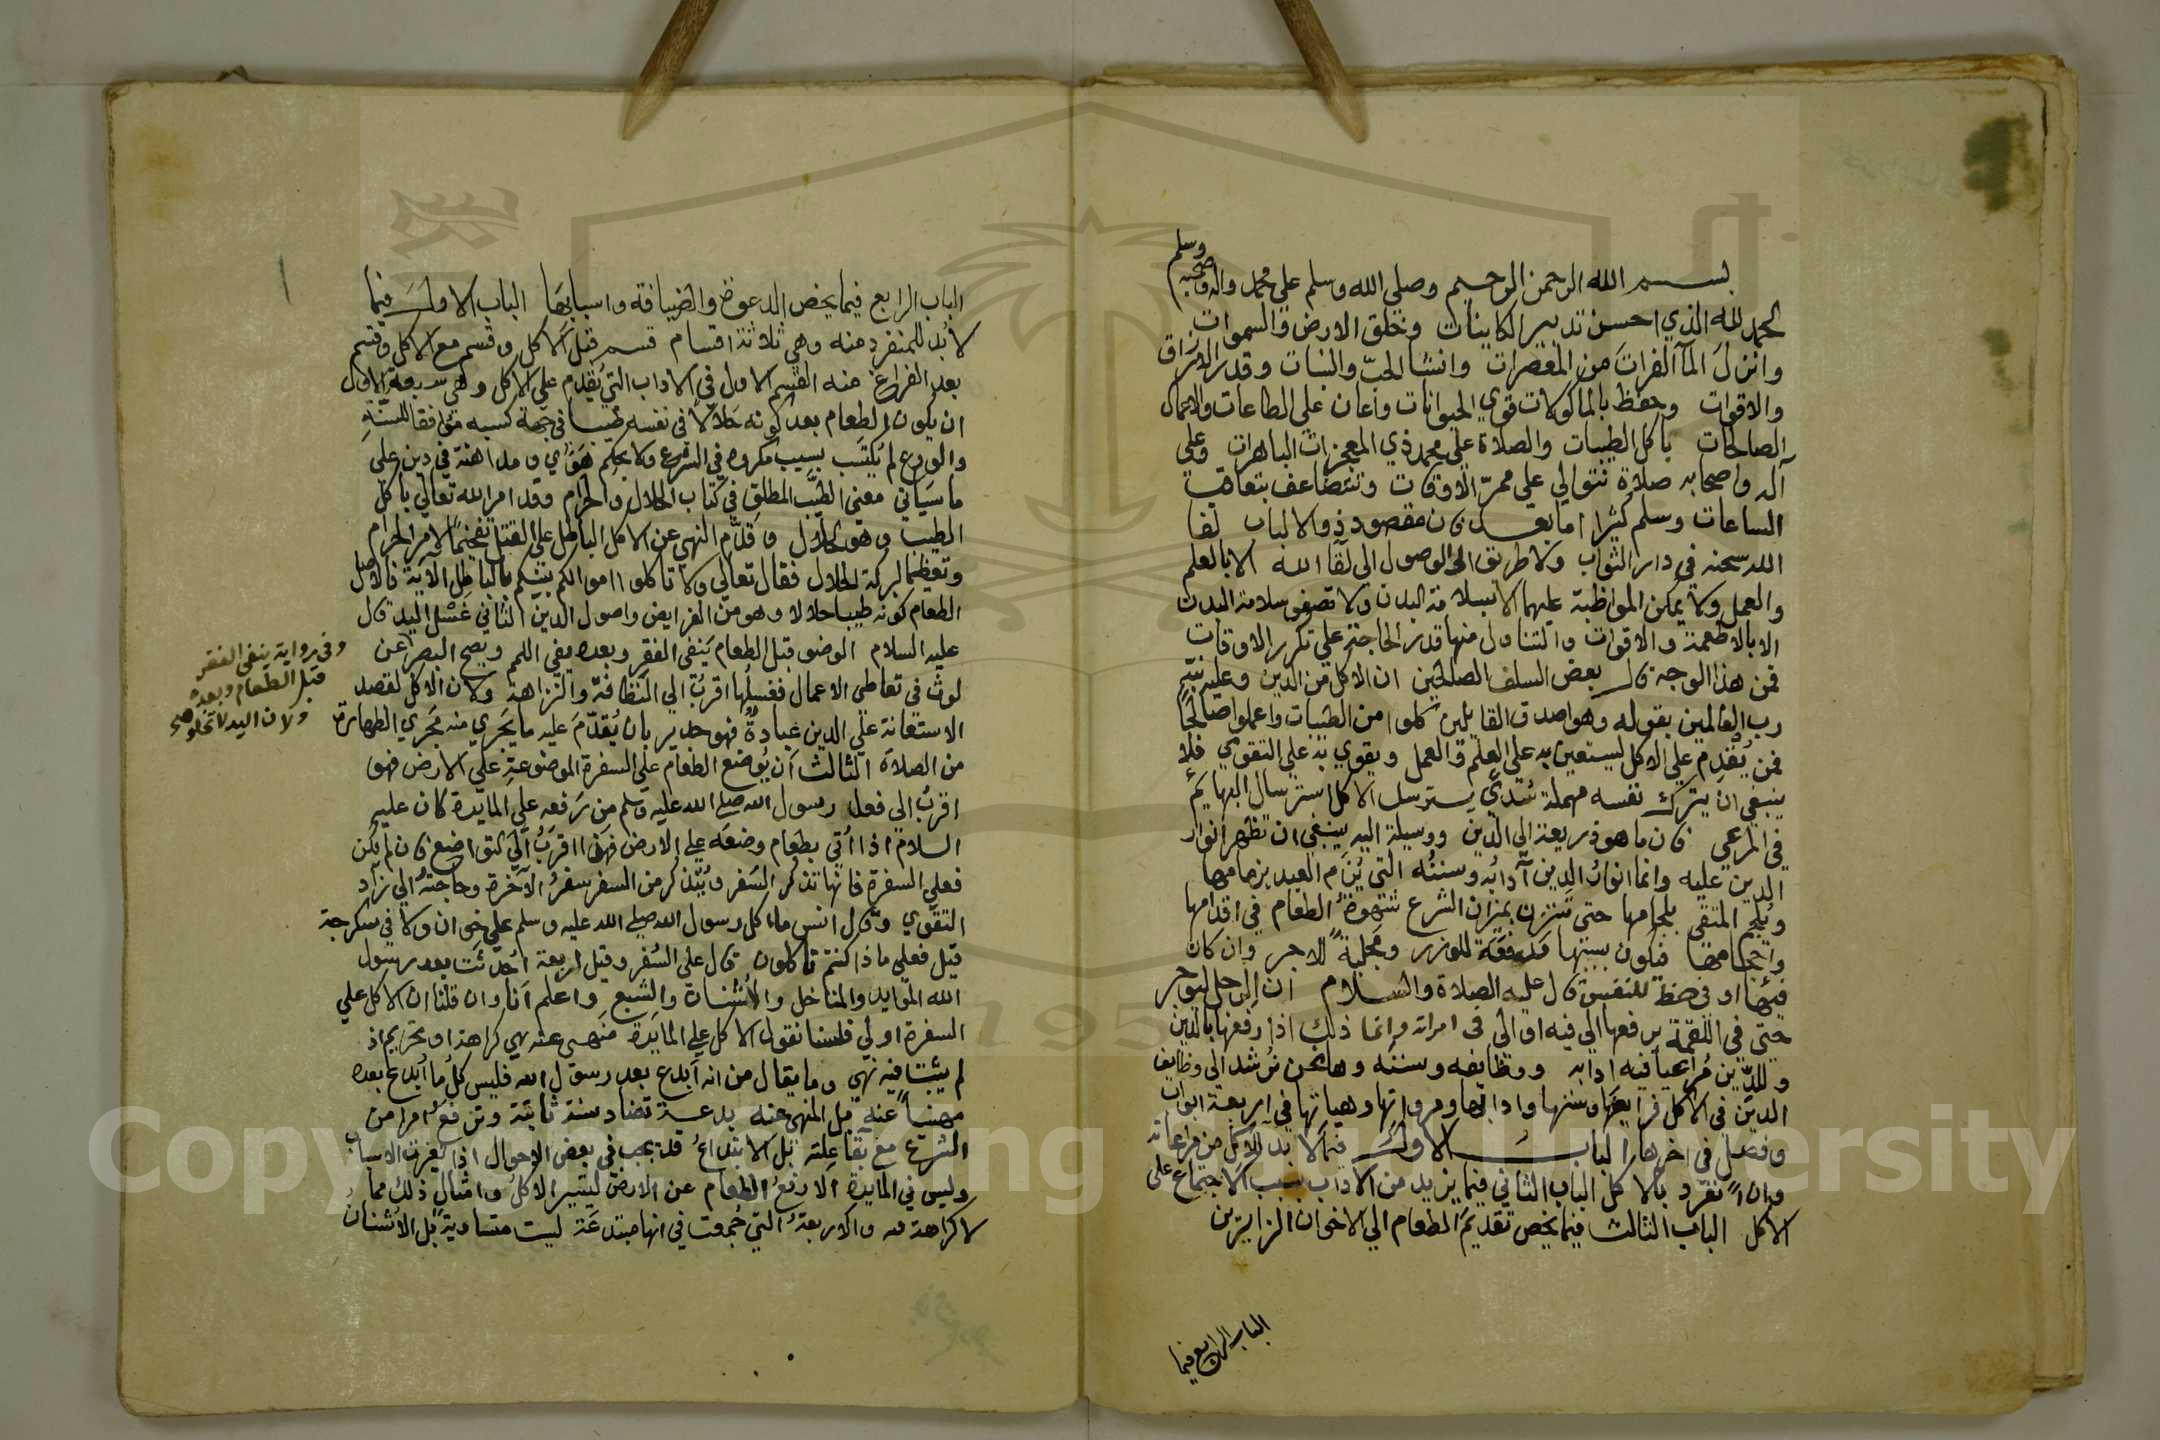 بسم الله الرحمن الرحيم وصلي الله وسلم علي محمد واله وصحبه وسلم
الحمد لله الذي احسن تدبير الكاينات وخلق الارض والسموات
وانزل المآ الفرات من المعصرات وانشا الحب والنبات وقدر الارزاق
والاقوات وحفظ بالماكولات قوي الحيوانات واعان علي الطاعات والاعمال
الصالحات باكل الطيبات والصلاة علي محمد ذي المعجزات الباهرات وعلي
آله واصحابه صلاة تتوالي علي ممر الاوقات وتتضاعف بتعاقب
الساعات وسلم كثيرا اما بعد فان مقصود ذو الالباب لقا
الله سبحنه في دار الثواب ولا طريق الى الوصول الي لقآ الله الا بالعلم
والعمل ولا يمكن المواظبة عليهما الا بسلامة البدن ولا تصفو سلامة البدن
الا بالاطعمة والاقوات والتناول منها قدر الحاجة علي تكرر الاوقات
فمن هذا الوجه قال بعض السلف الصالحين ان الاكل من الدين وعليه نبه
رب العالمين بقوله وهو اصدق القايلين كلوا من الطيبات واعملوا صالحا
فمن يقدم علي الاكل ليستعين به علي العلم والعمل ويقوي به علي التقوي فلا
ينبغي ان يترك نفسه مهملة سدي يسترسل الاكل استرسال البهايم
في المرعي فان ما هو ذريعة الي الدين ووسيلة اليه ينبغي ان تظهر انوار
الدين عليه وانما انوار الدين آدابه وسننه التي يزم العبد بزمامها
ويلجم المتقي بلجامها حتي تتزن بميزان الشرع شهوة الطعام في اقدامها
واحجامها فيكون بسببها مدفعة للوزر ومجلبة للاجر وان كان
فيها اوفي حظ للنفس قال عليه الصلاة والسلام ان الرجل ليوجر
حتي في اللقمة يرفعها الي فيه او الي في امراته وانما ذلك اذا رفعها بالدين
وللدين مراعيا فيه ادابه ووظايفه وسننه وها نحن نرشد الي وظايف
الدين في الاكل فرايضها وسننها وادابها ومرواتها وهياتها في اربعة ابواب
وفصل في اخرها الباب الاول فيما لا بد للاكل من مراعاته
وان انفرد بالاكل الباب الثاني فيما يزيد من الاداب بسبب الاجتماع علي
الاكل الباب الثالث فيما يخص تقديم الطعام الي الاخوان الزايرين
الباب الرابع فيما
الباب الرابع فيما يخص الدعوة والضيافة واسبابها الباب الاول فيما
لا بد للمنفرد منه وهي ثلاثة اقسام قسم قبل الاكل وقسم مع الاكل وقسم
بعد الفراغ منه القسم الاول في الاداب التي تقدم علي الاكل وهي سبعة الاول
ان يكون الطعام بعد كونه حلالا في نفسه طيبا في جهة كسبه موافقا للسنة
والورع لم يكتسب بسبب مكروه في الشرع ولا بحكم هوي ومداهنة في دين علي
ما سياتي معني الطيب المطلق في كتاب الحلال والحرام وقد امر الله تعالي باكل
الطيب وهو الحلال وقدم النهي عن الاكل الباطل علي القتل تفخيما لامر الحرام
وتعظيما لبركة الحلال فقال تعالي ولا تاكلوا اموالكم بينكم بالباطل الآية فالاصل
الطعام كونه طيبا حلالا وهو من الفرايض واصول الدين الثاني غسل اليد قال
عليه السلام الوضو قبل الطعام ينفي الفقر وبعده ينفي اللمم ويصح البصر عن
لوث في تعاطي الاعمال فغسلها اقرب الي النظافة والنزاهة ولان الاكل لقصد
الاستعانة علي الدين عبادة فهو جدير بان يقدم عليه ما يجري منه مجري الطهارة
من الصلاة الثالث ان يوضع الطعام علي السفرة الموضوعة علي الارض فهو
اقرب الي فعل رسول الله صلي الله عليه وسلم من رفعه علي المايدة كان عليه
السلام اذا اتي بطعام وضعه علي الارض فهذا اقرب الي التواضع فان لم يكن
فعلي السفرة فانها تذكر السفر ويتذكر من السفر سفر الآخرة وحاجته الي زاد
التقوي وقال انس ما اكل رسول الله صلي الله عليه وسلم علي خوان ولا في سكرجة
قيل فعلي ماذا كنتم تاكلون قال علي السفر وقيل اربعة احدثت بعد رسول
الله الموايد والمناخل والاشنان والشبع واعلم انا وان قلنا ان الاكل علي
السفرة اولي فلسنا نقول الاكل علي المايدة منهي عنه نهي كراهة او تحريم اذ
لم يثبت فيه نهي وما يقال من انه ابدع بعد رسول الله فليس كل ما ابدع بعده
منهيا عنه بل المنهي عنه بدعة تضاد سنة ثابتة وترفع امرا من
الشرع مع بقا علته بل الابتداع قد يجب في بعض الاحوال اذا تغيرت الاسباب
وليس في المايدة الا رفع الطعام عن الارض ليتيسر الاكل وامثال ذلك مما
لا كراهة فيه والاربعة التي جمعت في انها مبتدعة ليست متساوية بل الاشنان
وفي رواية ينفي الفقر
قبل الطعام وبعده
ولان اليد لا تخلو صح